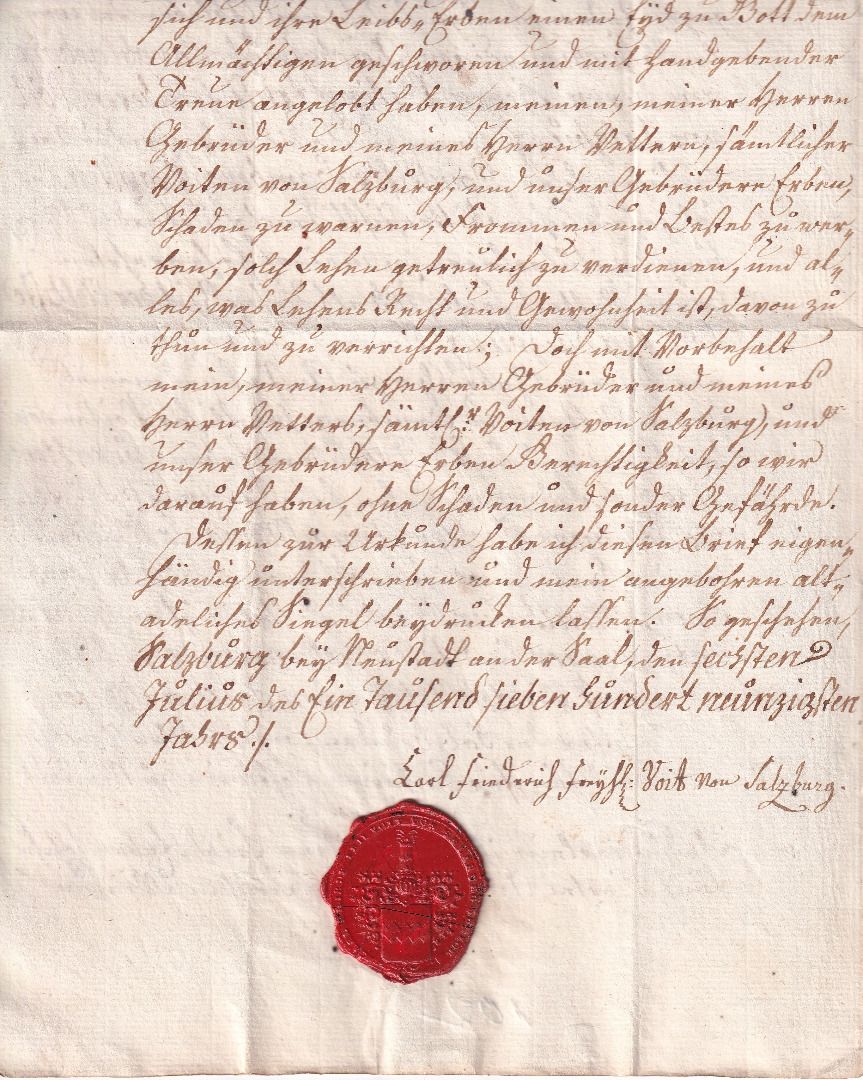 sich und ihre Leibs-Erben einen Eyd zu Gott dem
Allmächtigen geschworen und mit handgebender
Treue angelobt haben, meinen, meiner Herren
Gebrüder und meines Herrn Vettern, sämtlicher
Voiten von Salzburg, und unser Gebrüdere Erben,
Schaden zu warnen, Frommen und Bestes zu wer-
ben, solch Lehen getreulich zu verdienen, und al-
les, was Lehens Recht und Gewohnheit ist, davon zu
thun und zu verrichten; Doch mit Vorbehalt
mein, meiner Herren Gebrüder und meines
Herrn Vetters, sämtl:r Voiten von Salzburg, und
unser Gebrüdere Erben Gerechtigkeit, so wir
darauf haben, ohne Schaden und sonder Gefährde.
Dessen zur Urkunde habe ich diesen Brief eigen-
händig unterschrieben und mein angebohren alt-
adeliches Siegel beydrucken lassen. So geschehen,
Salzburg bey Neustadt an der Saal, den sechsten
Julius des Ein Tausend sieben hundert neunzigsten
Jahrs./.
Carl Friederich Freyh: Voit von Salzburg.